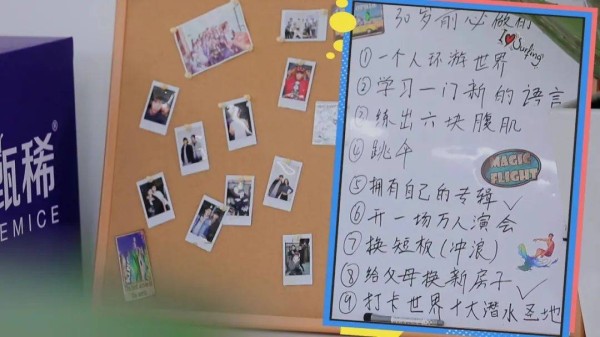 甄稀
EMICE
30岁前必做的
I Surfing
①一个人环游世界
②学习一门新的语言
③练出六块腹肌
④跳伞
MAGIC
FLIGHT
⑤拥有自己的专辑✓
⑥开一场万人演会
⑦换短板(冲浪)
⑧给父母换新房子✓
⑨打卡世界十大潜水圣地